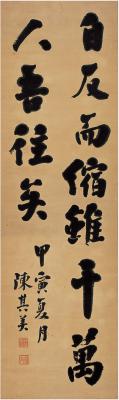 自反而缩雖千萬
人吾往矣
甲寅夏月
陳其美